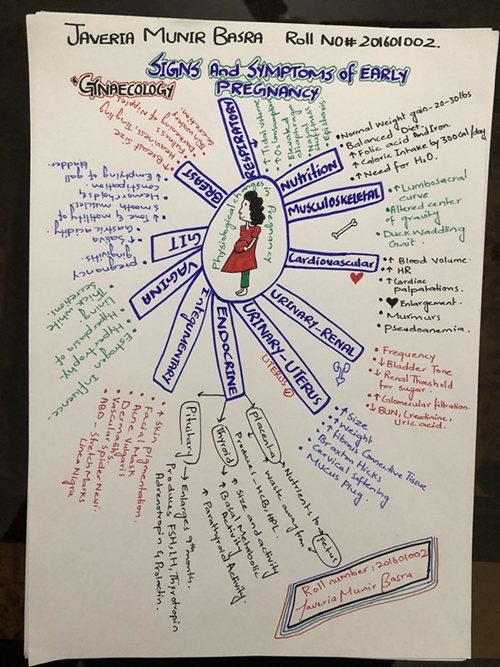 JAVERIA MUNIR BASRA Roll NO# 201601002.
SIGNS AND SYMPTOMS OF EARLY
PREGNANCY
GYNAECOLOGY
Physiological changes in Pregnancy
RESPIRATORY
↑ Tidal volume
↑ O₂ Consumption
Elevated diaphragm
Nasal Stuffiness
Epistaxis
Nutrition
Normal Weight gain - 20-30lbs
Balanced Diet.
↑ Folic acid And Iron.
↑ Caloric Intake by 300Cal/day
↑ Need for H₂O.
Musculoskeletal
↑ Lumbosacral
curve
Altered center
of gravity
Duck Waddling
Gait.
Cardiovascular
↑ Blood Volume
↑ HR
↑ Cardiac
palpatations.
Enlargement
Murmurs
pseudoanemia.
URINARY-RENAL
Frequency
↓ Bladder Tone
↓ Renal Threshold
for Sugar.
↑ Glomerular filtration.
↓ BUN, Creatinine,
Uric acid.
URINARY-UTERUS
UTERUS
↑ Size
↑ Weight
↑ Fibrous Connective Tissue
Braxton Hicks
Cervical Softening
Mucus Plug.
ENDOCRINE
Placenta
Nutrients to Fetus
Waste away from
Produces - HCG, HPL.
Thyroid
↑ Size and activity
↑ Basal Metabolic
Activity
↑ Parathyroid Activity.
Pituitary
Enlarges 9th month.
Produces FSH, LH, Thyrotropin
Adrenotropin & Prolactin.
Integumentary
↑ Skin pigmentation.
Facial Mask
Acne Vulgaris
Dermatitis
Vascular Spider Nevi
ABD - Stretch Marks
Linea Nigra
VAGINA
Estrogen Influence.
Hypertrophy
Hyperplasia of
Lining
Thick White
Secretions.
GIT
pregnancy
gingivitis.
↑ Saliva
Gastric acidity
↓ Tone & motility of
smooth muscles
Hemorrhoids &
constipation
↑ Emptying of gall
bladder
BREAST
↑ Breast Size
Heaviness, Tingling
of Nipples.
Roll number: 201601002
Javeria Munir Basra